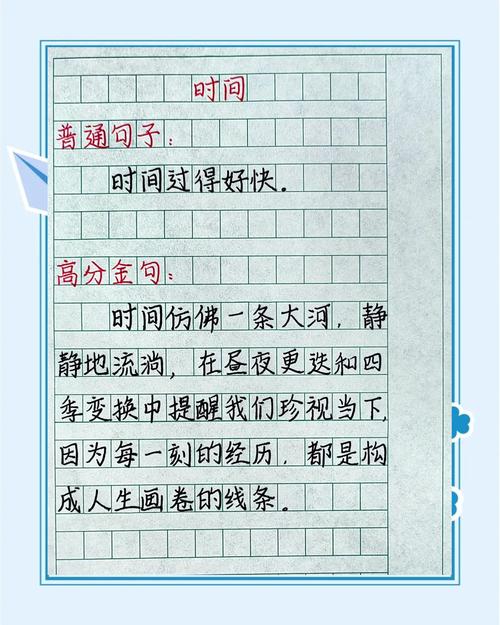 时间
普通句子：
时间过得好快。
高分金句：
时间仿佛一条大河，静
静地流淌，在昼夜更迭和四
季变换中提醒我们珍视当下，
因为每一刻的经历，都是构
成人生画卷的线条。